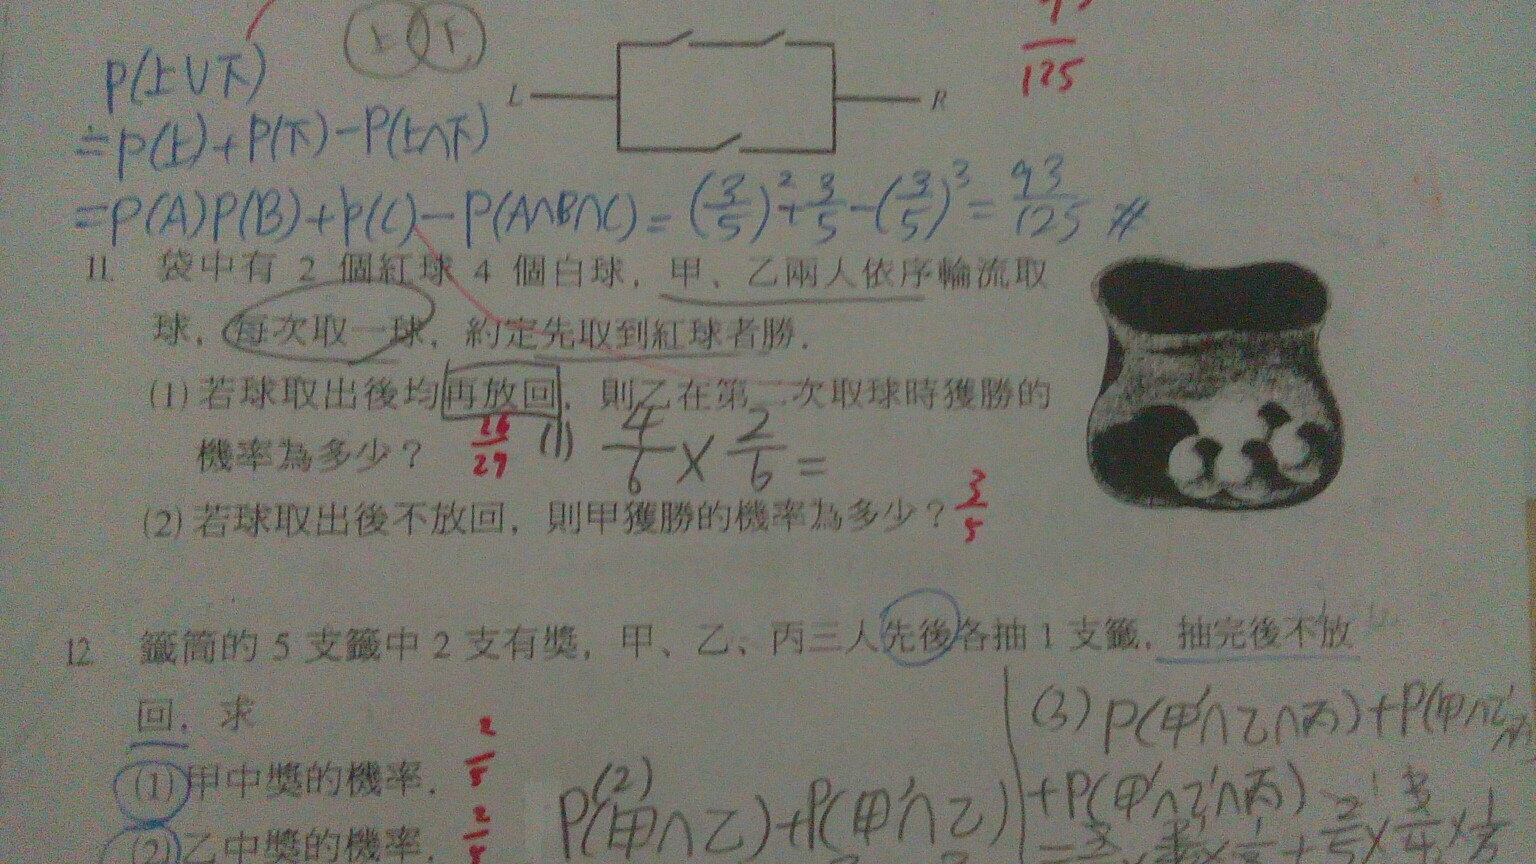 上 下
93
125
P(上∪下)
=P(上)+P(下)-P(上∩下)
L R
=P(A)P(B)+P(C)-P(A∩B∩C)=(3/5)²+3/5-(3/5)³=93/125 #
11. 袋中有 2 個紅球 4 個白球，甲、乙兩人依序輪流取
球，每次取一球，約定先取到紅球者勝．
(1) 若球取出後均再放回，則乙在第二次取球時獲勝的
機率為多少？ (1) 4/6 × 2/6 =
(2) 若球取出後不放回，則甲獲勝的機率為多少？ 3/5
12. 籤筒的 5 支籤中 2 支有獎，甲、乙、丙三人先後各抽 1 支籤，抽完後不放
回，求
(3) P(甲'∩乙∩丙)+P(甲∩乙'
(1) 甲中獎的機率． 2/5
(2)
P(甲∩乙)+P(甲'∩乙)
+P(甲'∩乙'∩丙)
(2) 乙中獎的機率． 2/5